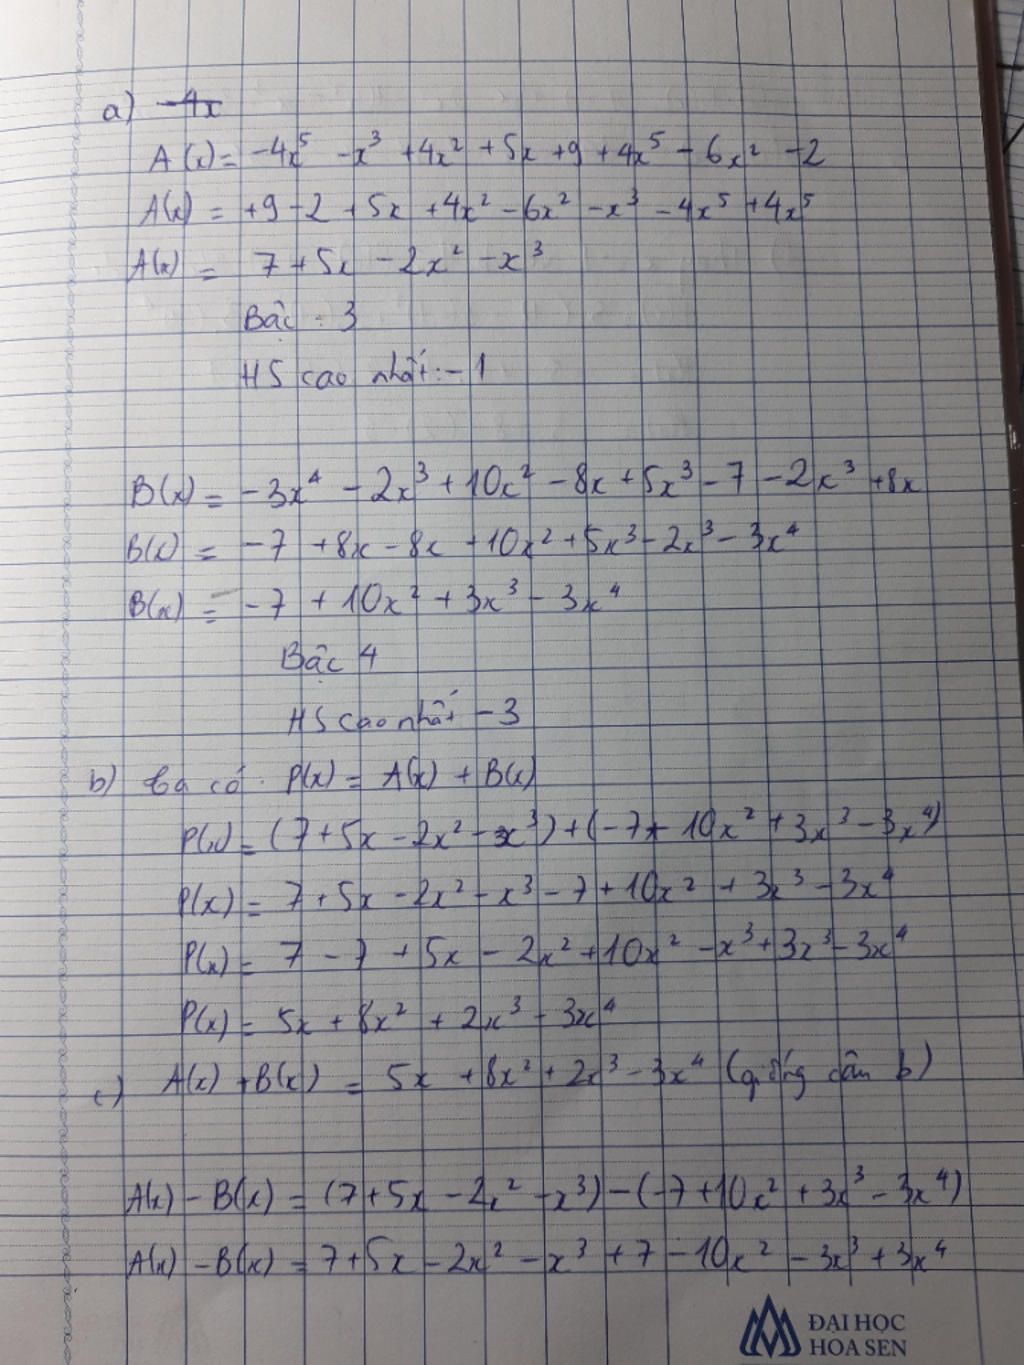 a) -4x
A(x) = -4x⁵ -x³ +4x² +5x +9 +4x⁵ - 6x² -2
A(x) = +9 -2 +5x +4x² -6x² -x³ -4x⁵ +4x⁵
A(x) = 7 + 5x - 2x² - x³
Bậc : 3
HS cao nhất: -1
B(x) = -3x⁴ - 2x³ + 10x² - 8x + 5x³ - 7 - 2x³ +8x
B(x) = -7 +8x -8x +10x² +5x³ -2x³ -3x⁴
B(x) = -7 + 10x² + 3x³ - 3x⁴
Bậc 4
HS cao nhất -3
b) ta có: P(x) = A(x) + B(x)
P(x) = (7 + 5x - 2x² - x³) + (-7 + 10x² + 3x³ - 3x⁴)
P(x) = 7 + 5x - 2x² - x³ - 7 + 10x² + 3x³ - 3x⁴
P(x) = 7 - 7 + 5x - 2x² + 10x² - x³ + 3x³ - 3x⁴
P(x) = 5x + 8x² + 2x³ - 3x⁴
c) A(x) + B(x) = 5x + 8x² + 2x³ - 3x⁴ (giống câu b)
A(x) - B(x) = (7 + 5x - 2x² - x³) - (-7 + 10x² + 3x³ - 3x⁴)
A(x) - B(x) = 7 + 5x - 2x² - x³ + 7 - 10x² - 3x³ + 3x⁴
ĐẠI HỌC
HOA SEN